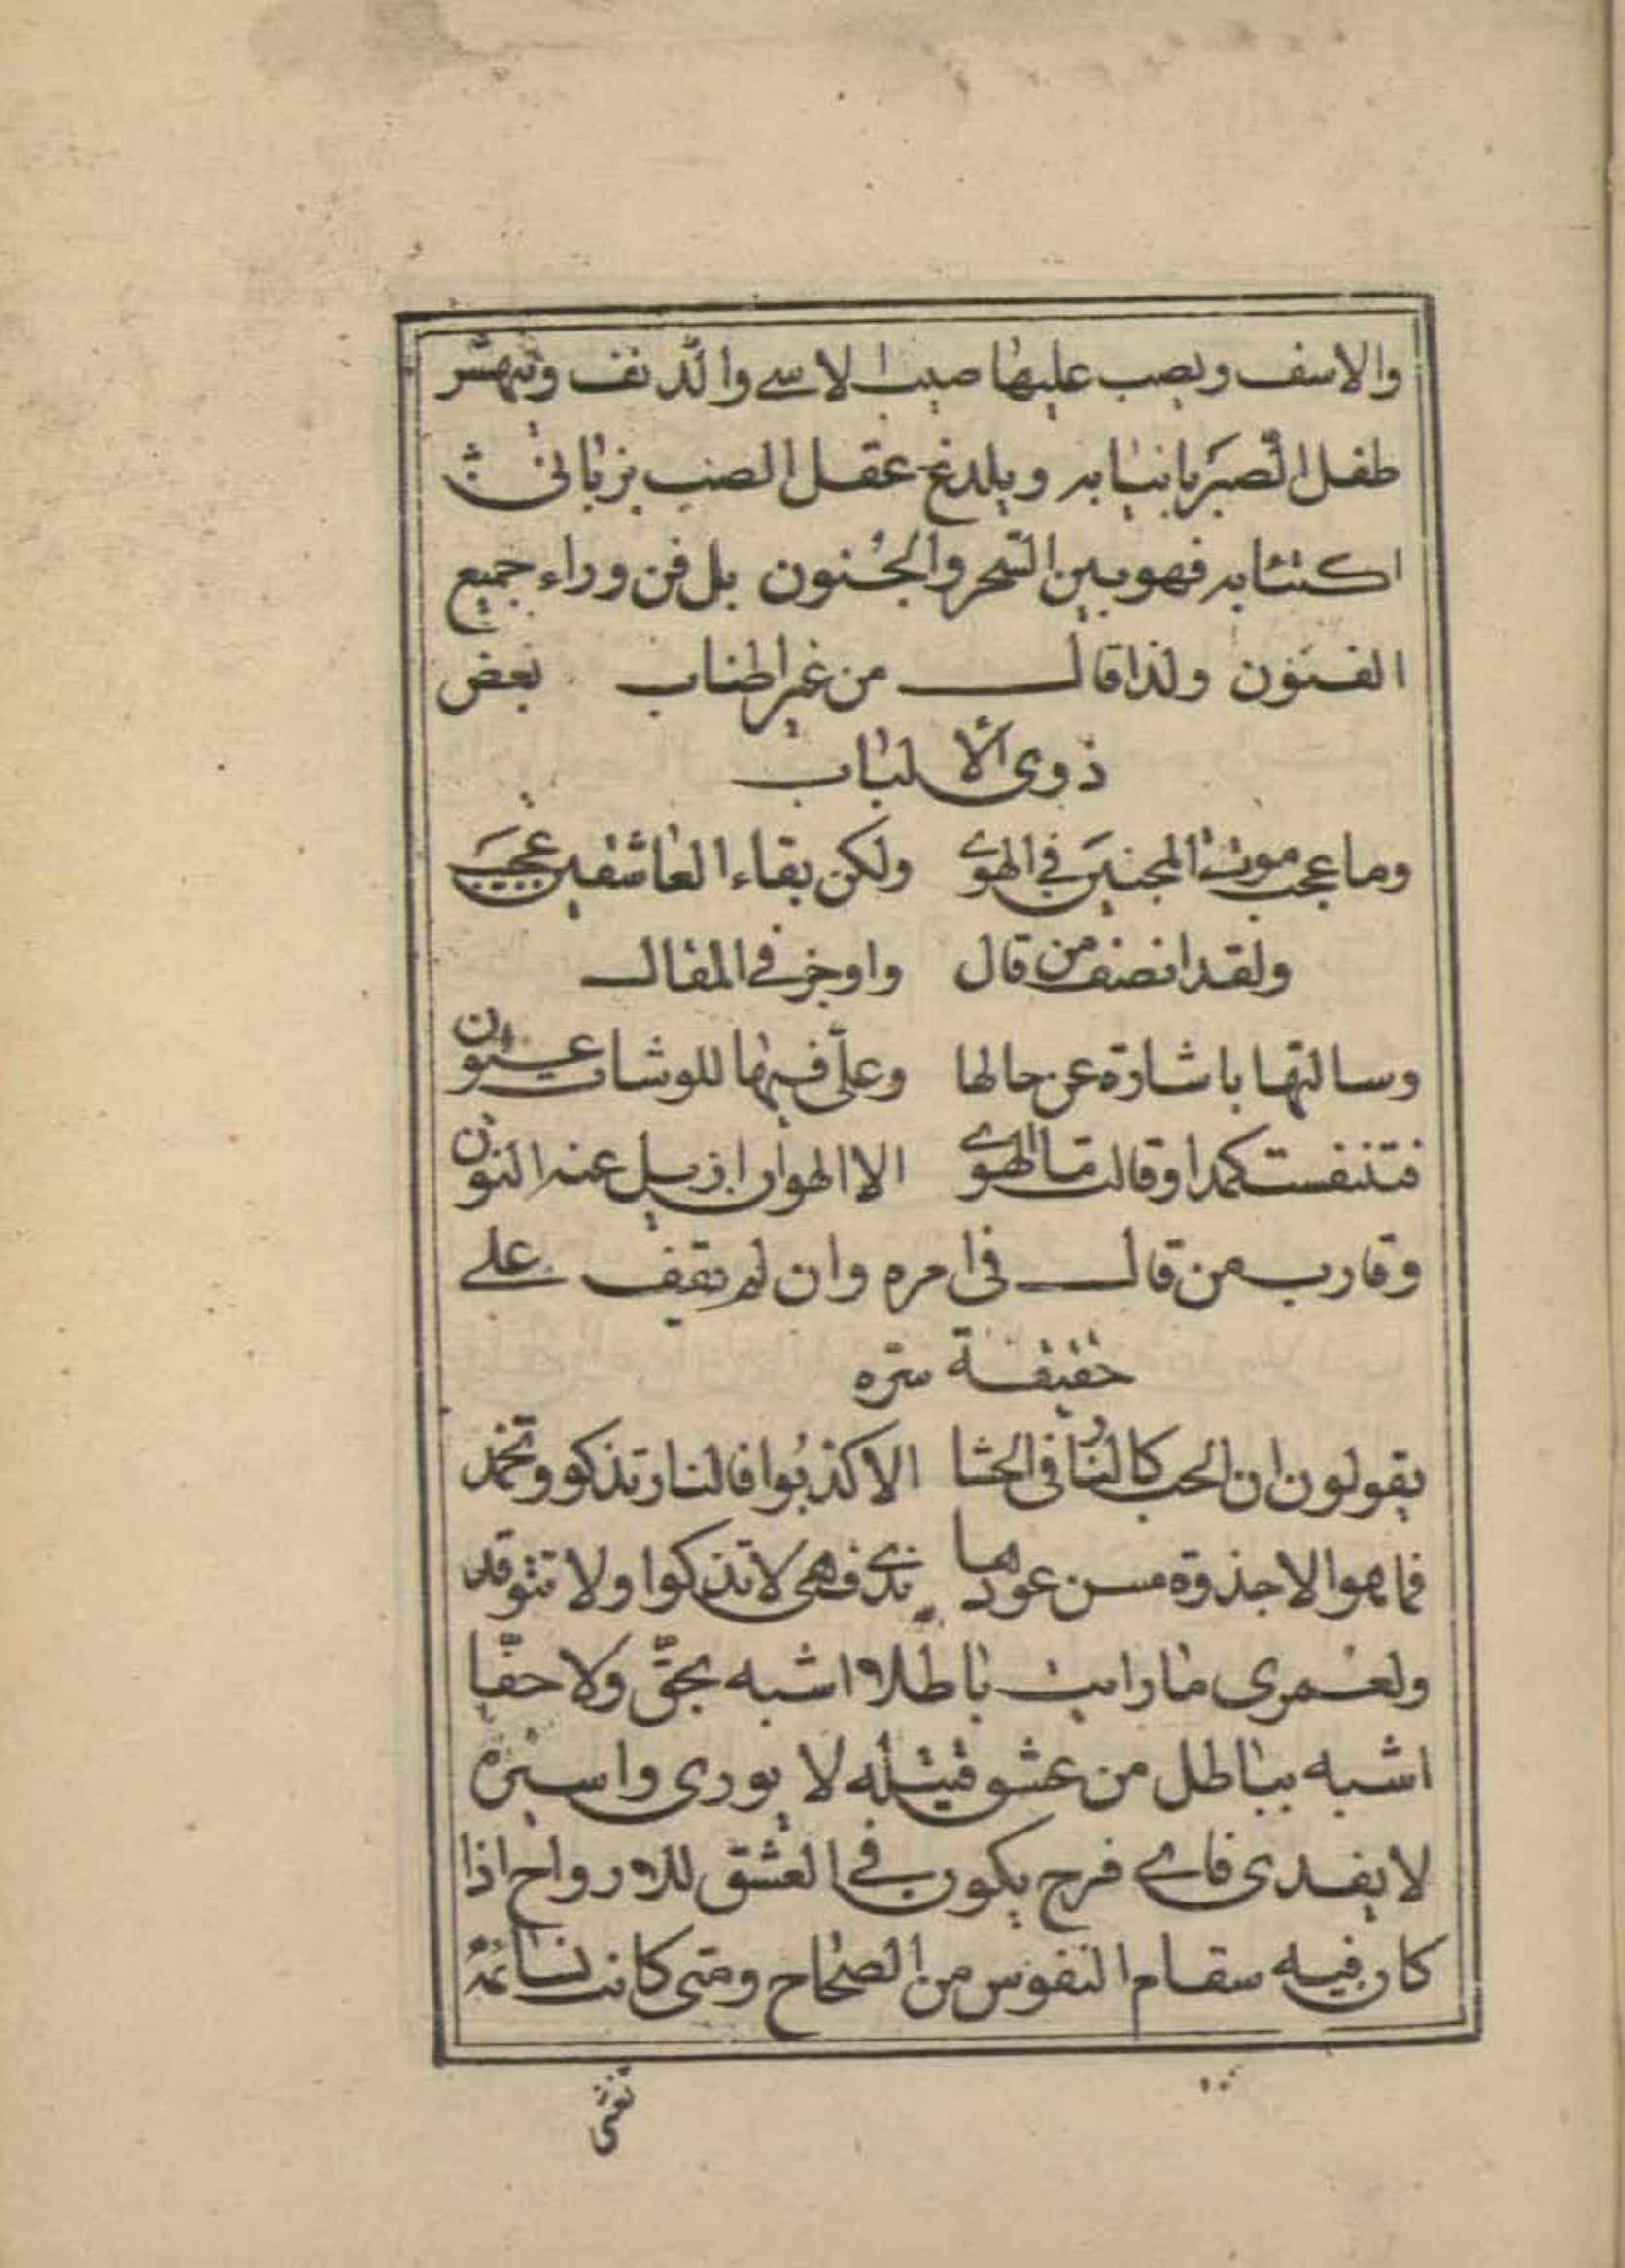 والاسف ويصب عليها صيب الاسے والدنف وينهش
طفل الصبر بانيابه ويلدغ عقل الصب بزبانی
اكتئابه فهو بين السحر والجنون بل فن وراء جميع
الفنون ولذا قال من غير اطناب بعض
ذوی الالباب
وما عجب موت المحبين فی الهوے ولكن بقاء العاشقين عجيب
ولقد انصف من قال واوجز فے المقال
وسالتها باشارة عن حالها وعلى فيها للوشات عيون
فتنفست كمدا وقالت ما الهوے الا الهوان ازيل عنه النون
وقارب من قال فی امره وان لم يقف علے
حقيقة سره
يقولون ان الحب كالنار فی الحشا الا كذبوا فالنار تذكو وتخمد
فما هو الا جذوة مس عودها ندے فهی لا تذكوا ولا تتوقد
ولعمری ما رايت باطلا اشبه بحق ولا حقا
اشبه بباطل من عشق قتيله لا يوری واسيره
لا يفدی فاے فرح يكون فے العشق للارواح اذا
كان فيه سقام النفوس من الصحاح ومتى كانت نسائمه